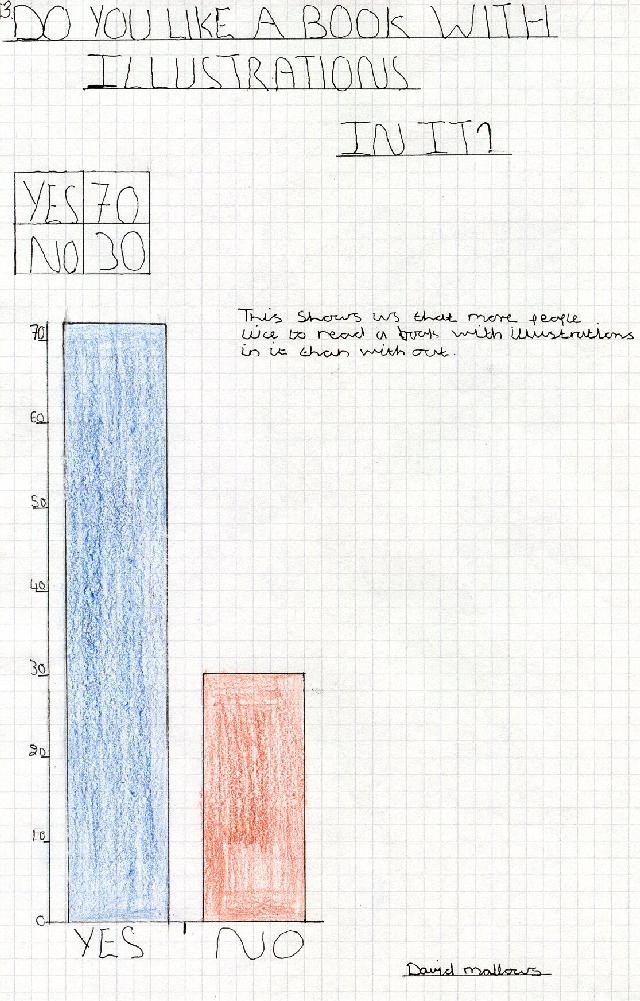 3.
DO YOU LIKE A BOOK WITH
ILLUSTRATIONS
IN IT?
YES 70
NO 30
This shows us that more people
like to read a book with illustrations
in it than with out.
70
60
50
40
30
20
10
0
YES NO
David Mallows